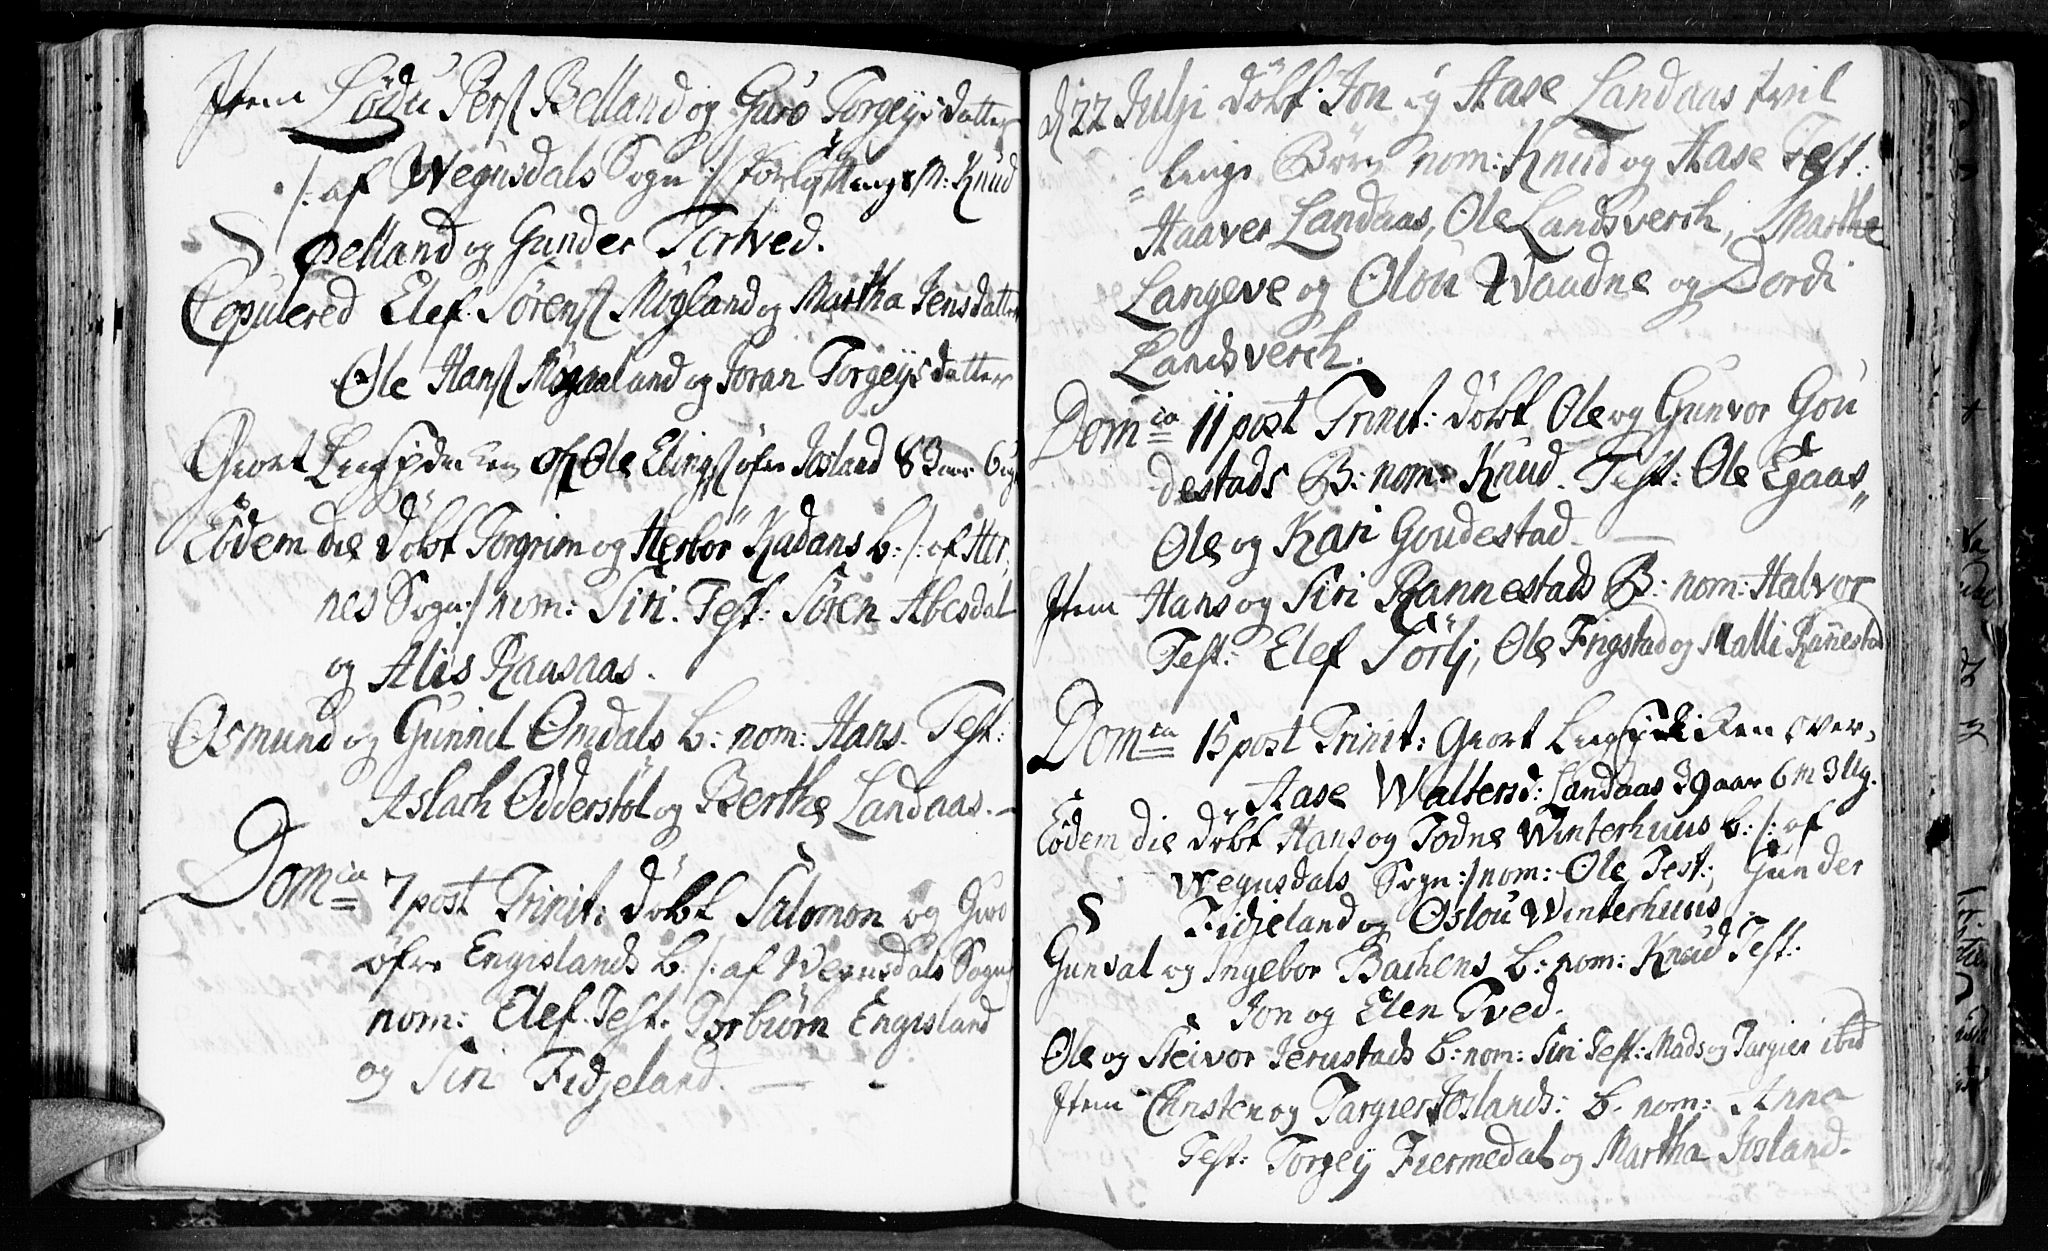 Item Lødu Pers Belland og Guro Torgeÿs datter
/: af Wegusdals Sogn :/ Forl: M: Knud
Belland og Gunder Tortved.
Copulered Elef Sørens Mögland og Martha Jensdatter
Ole Hans Mögaaland og Joran Torgeÿs datter
Giort Liig ofr Ole Elings öfre Josland 83 aar 6 ug
Eodem die döbt Torgrim og Herbör Kadans b: /: af Her,
nes Sogn :/ nom: Siri. Test: Sören Abesdal
og Alis Raasaas.
Osmund og Gunnil Omdals b: nom: Hans. Test:
Aslach Odderstöl og Berthe Landaas. —
Dom ca 7 post Trinit: döbt Salomon og Guro
öfre Engislands b: /: af Wegusdals Sogn :/
nom: Elef. Test: Torbiörn Engisland
og Siri Fidjeland. — -
d 22 Julji döbt Jon og Aase Landaas tvil
lings Börn nom: Knud og Aase Test:
Haaver Landaas, Ole Landsverch, Marthe
Langeve og Olou Waadne og Dordi
Landsverch.
Dom ca 11 post Trinit: döbt Ole og Gunvor Gou
destads B: nom: Knud. Test: Ole Egaas,
Ole og Kari Goudestad. —
Item Hans og Siri Rannestads B: nom: Halvor
Test: Elef Törlj, Ole Frigstad og Malli Rannestad
Dom ca 15 post Trinit: Giort Liig over
Aase Waltersd: Landaas 39 aar 6 m 3 Ug.
Eodem die döbt Hans og Todne Winterhuus b: /: af
Wegusdals Sogn :/ nom: Ole Test: Gunder
Fidjeland og Oslou Winterhuus
Gunsal og Ingebor Bachens b: nom: Knud Test:
Jon og Elen Tved.
Ole og Steivor Jerustads b: nom: Siri Test: Mads og Targier ibid
Item Christen og Targier Joslands: b. nom: Anna
Test: Torgeÿ Fiermedal og Martha Josland.